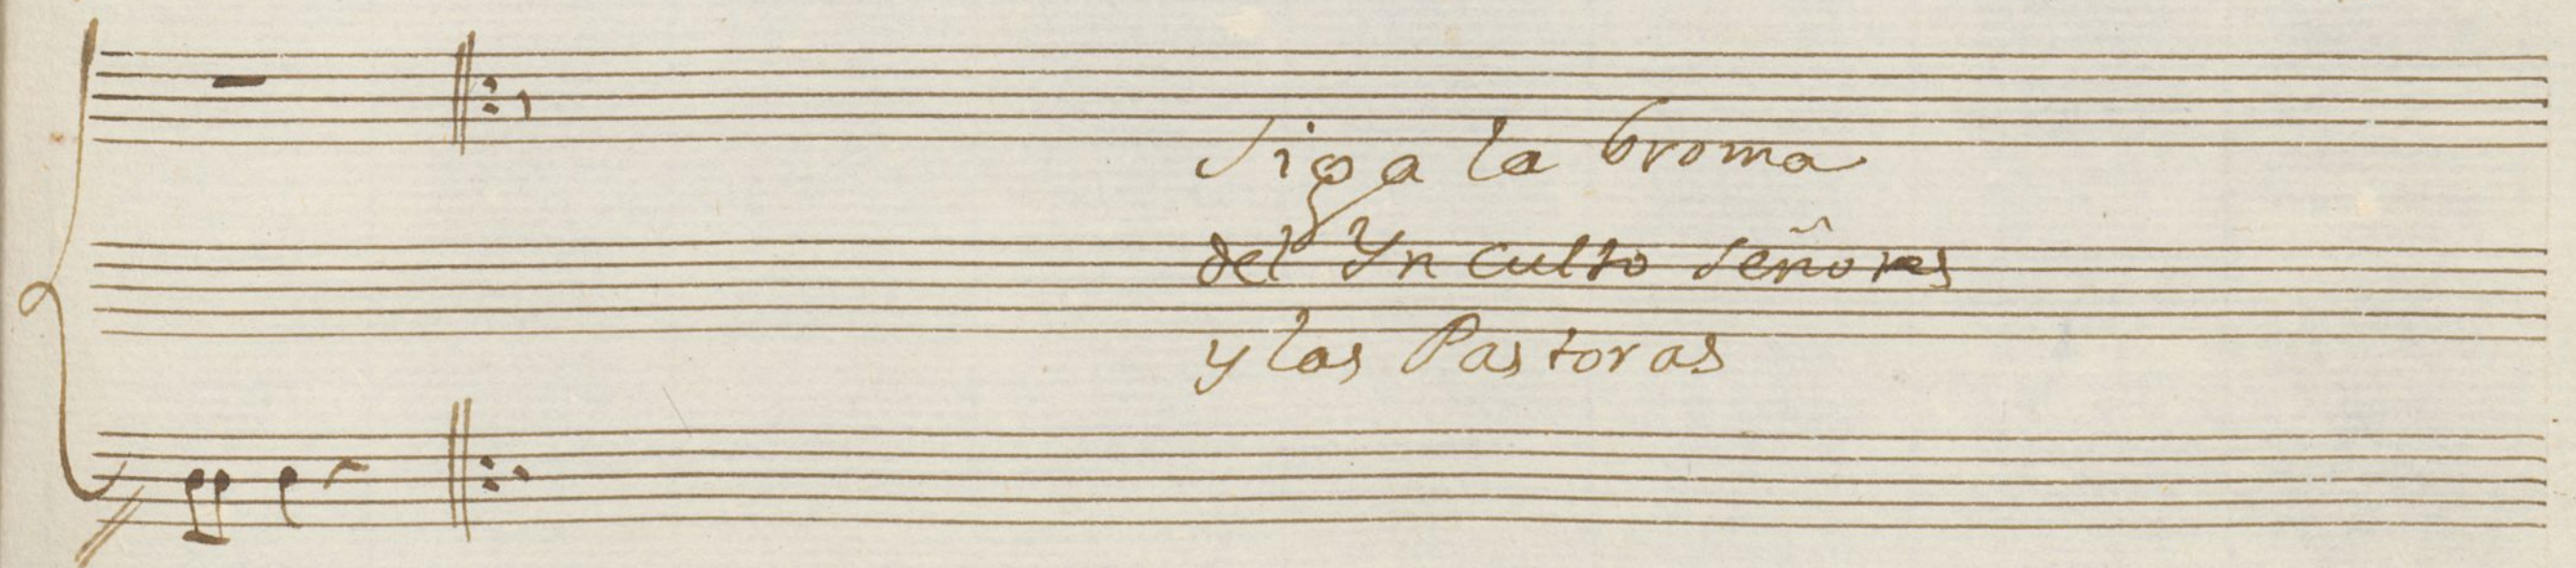 Siga la broma
del Yn culto señores
y las Pastoras